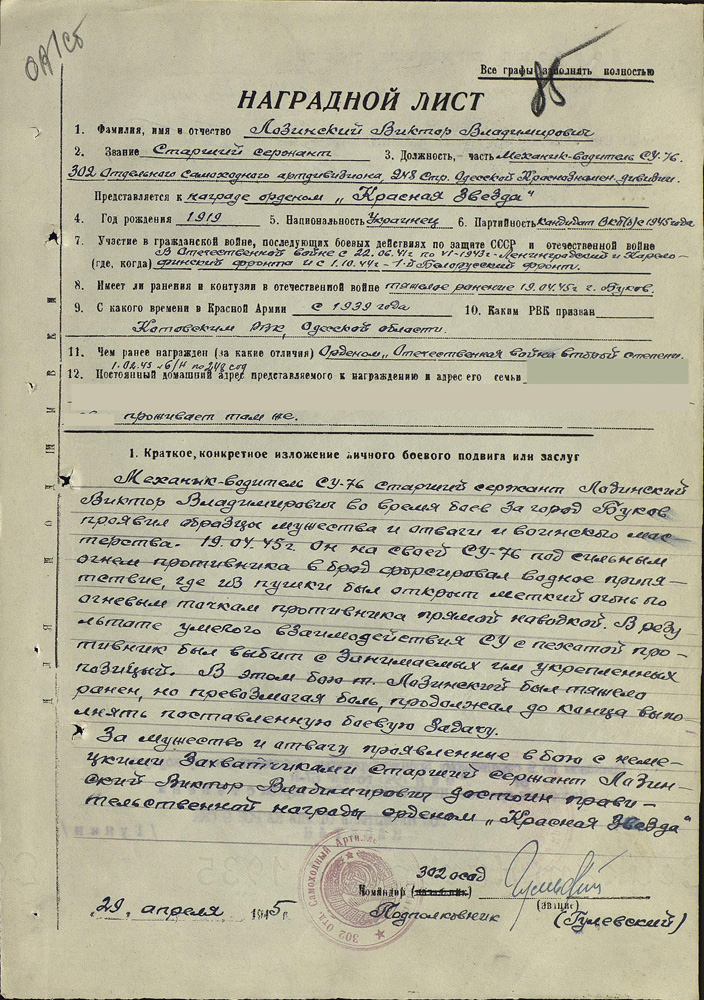 ОА/сб
85
Все графы заполнять полностью
НАГРАДНОЙ ЛИСТ
1. Фамилия, имя и отчество Лозинский Виктор Владимирович
2. Звание Старший сержант 3. Должность, часть Механик-водитель СУ-76.
302 Отдельного самоходного артдивизиона, 248 Стр. Одесской Краснознамен. дивизии.
Представляется к награде орденом „Красная Звезда"
4. Год рождения 1919 5. Национальность Украинец 6. Партийность кандидат ВКП(б) с 1945 года
7. Участие в гражданской войне, последующих боевых действиях по защите СССР и отечественной войне
В Отечественной войне с 22.06.41г по VI-1943г-Ленинградский и Карело-
(где, когда) финский фронта и с 1.10.44г - 1-й Белорусский фронт.
8. Имеет ли ранения и контузии в отечественной войне тяжелое ранение 19.04.45г г. Буков.
9. С какого времени в Красной Армии с 1939 года 10. Каким РВК призван
Котовским РВК, Одесской области.
11. Чем ранее награжден (за какие отличия) Орденом „Отечественная война второй степени.
1.02.45 №6/Н по 248 сод
12. Постоянный домашний адрес представляемого к награждению и адрес его семьи
проживает там же.
1. Краткое, конкретное изложение личного боевого подвига или заслуг
Механик-водитель СУ-76 старший сержант Лозинский
Виктор Владимирович во время боев за город Буков
проявил образцы мужества и отваги и воинского мас-
терства. 19.04.45г. он на своей СУ-76 под сильным
огнем противника в брод форсировал водное препя-
тствие, где из пушки был открыт меткий огонь по
огневым точкам противника прямой наводкой. В резу
льтате умелого взаимодействия СУ с пехотой про-
тивник был выбит с занимаемых им укрепленных
позиций. В этом бою т. Лозинский был тяжело
ранен, но превозмагая боль, продолжал до конца выпо-
лнять поставленную боевую задачу.
За мужество и отвагу проявленные в бою с неме-
цкими захватчиками старший сержант Лозин-
ский Виктор Владимирович достоин прави-
тельственной награды орденом „Красная Звезда"
302 осад
Командир
(звание)
29. апреля 1945г.
Подполковник (Гулевский)
302 Отд. Самоходный Артил